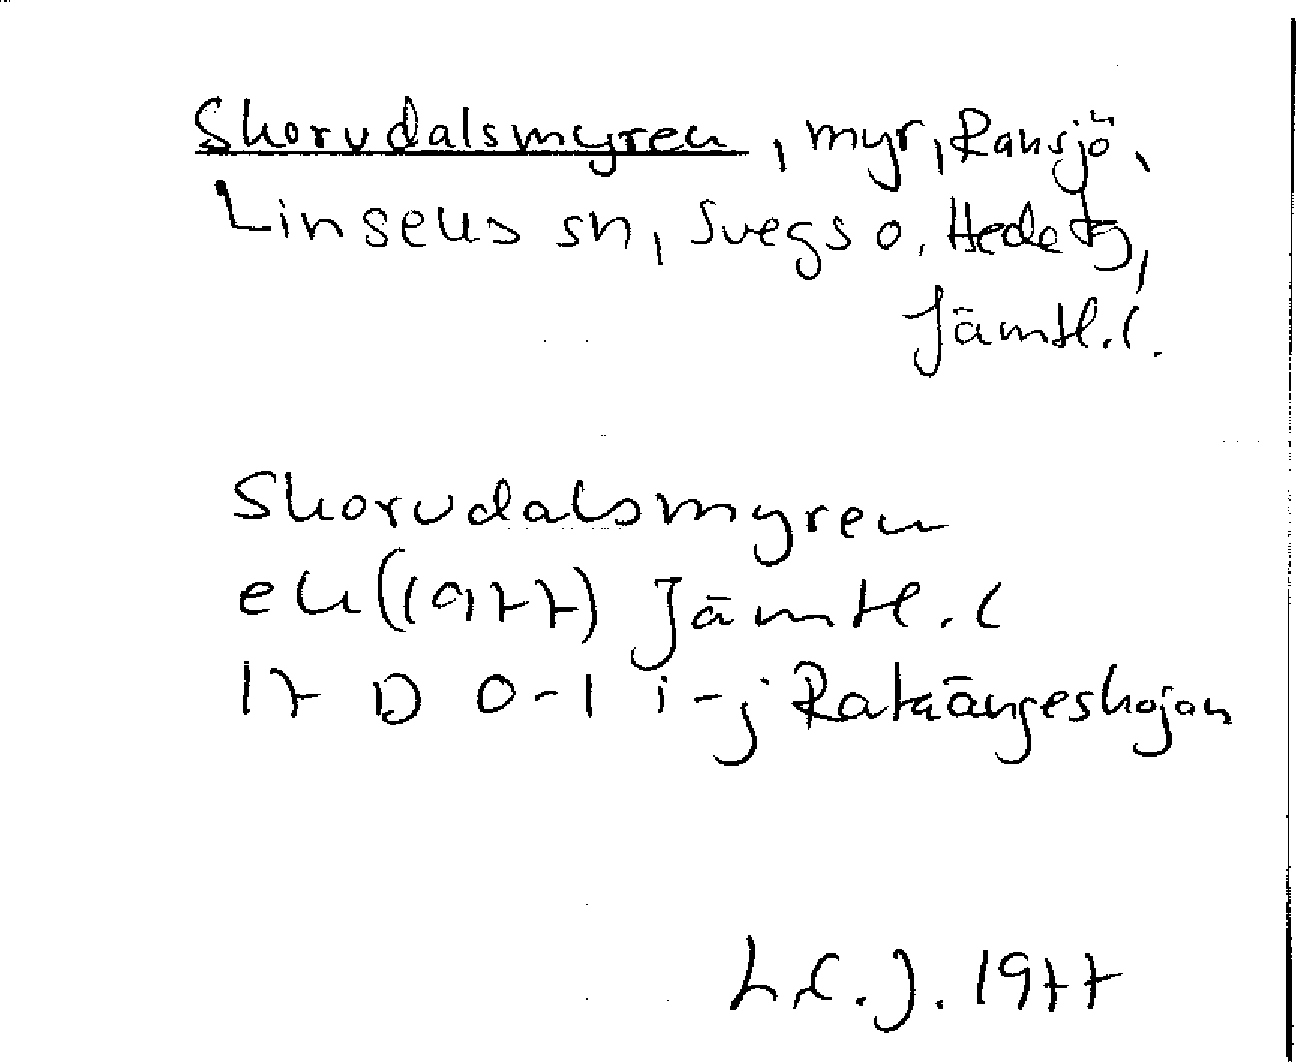 Skorvdalsmyren, myr, Ransjö,
Linsells sn, Svegs o. Hede tg,
Jämtl. l.
Skorvdalsmyren
ek (1977) Jämtl. l
17 D 0-1 i-j Rataängeskojan
L.E.J. 1977